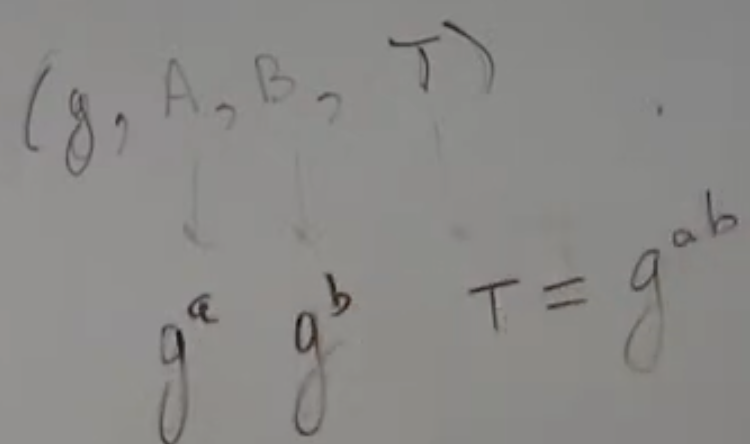 (g, A, B, T)
g^a g^b T = g^{ab}